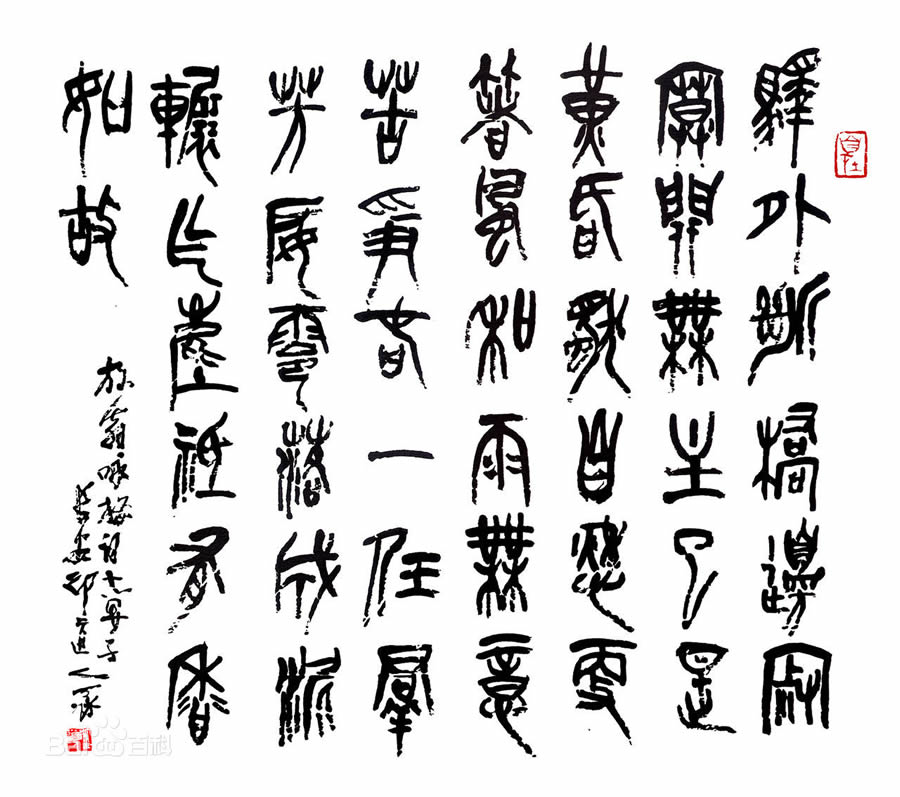 驛外斷橋邊寂
寞開無主已是
黃昏獨自愁更
著風和雨無意
苦爭春一任羣
芳妒零落成泥
輾作塵祇有香
如故
放翁咏梅詞
Baidu百科